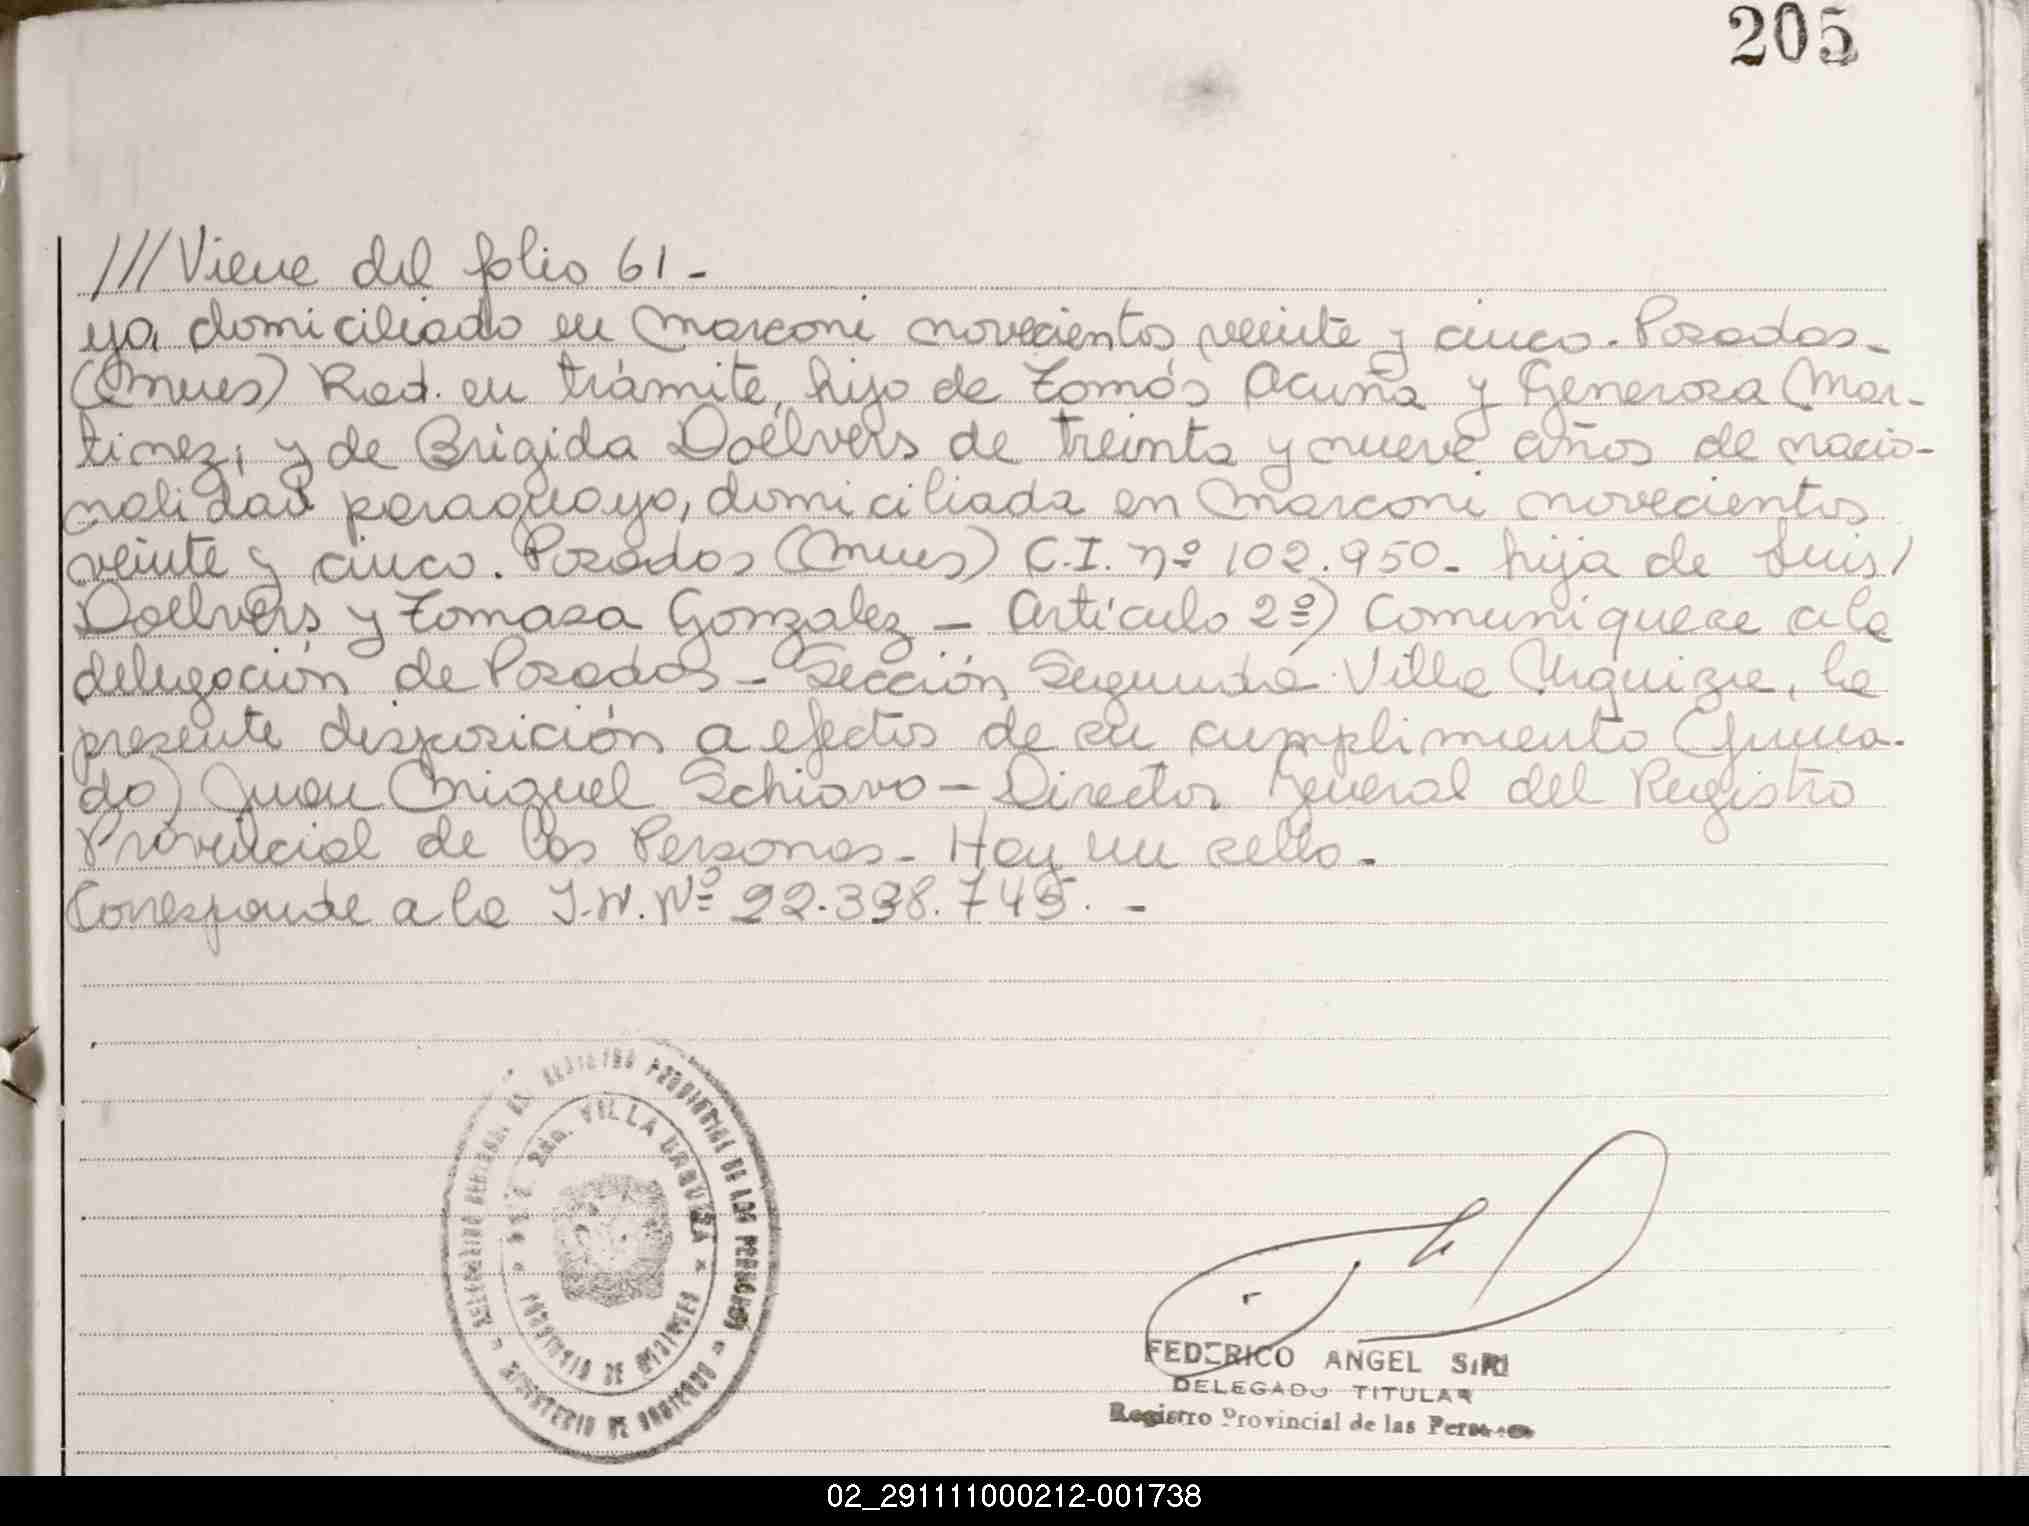 205
///Viene del folio 61-
ya, domiciliado en Marconi novecientos veinte y cinco. Posadas-
(Mnes) Rad. en trámite, hijo de Tomás Acuña y Generosa Mar-
tinez, y de Brigida Doelvers de treinta y nueve años de nacio-
nalidad paraguaya, domiciliada en Marconi novecientos
veinte y cinco. Posadas (Mnes) C.I. nº 102.950- hija de Luis/
Doelvers y Tomasa Gonzalez - Artículo 2º) Comuniquese a la
delegación de Posadas - Sección Segunda Villa Urquiza, la
presente disposición a efectos de su cumplimiento (firma-
do) Juan Miguel Schiavo - Director General del Registro
Provincial de las Personas - Hay un sello.-
Corresponde a la I.N. Nº 22.338.745.-
REGISTRO PROVINCIAL DE LAS PERSONAS
2da. VILLA URQUIZA
PROVINCIA DE MISIONES
MINISTERIO DE GOBIERNO
FEDERICO ANGEL SIRI
DELEGADO TITULAR
Registro Provincial de las Personas
02_291111000212-001738